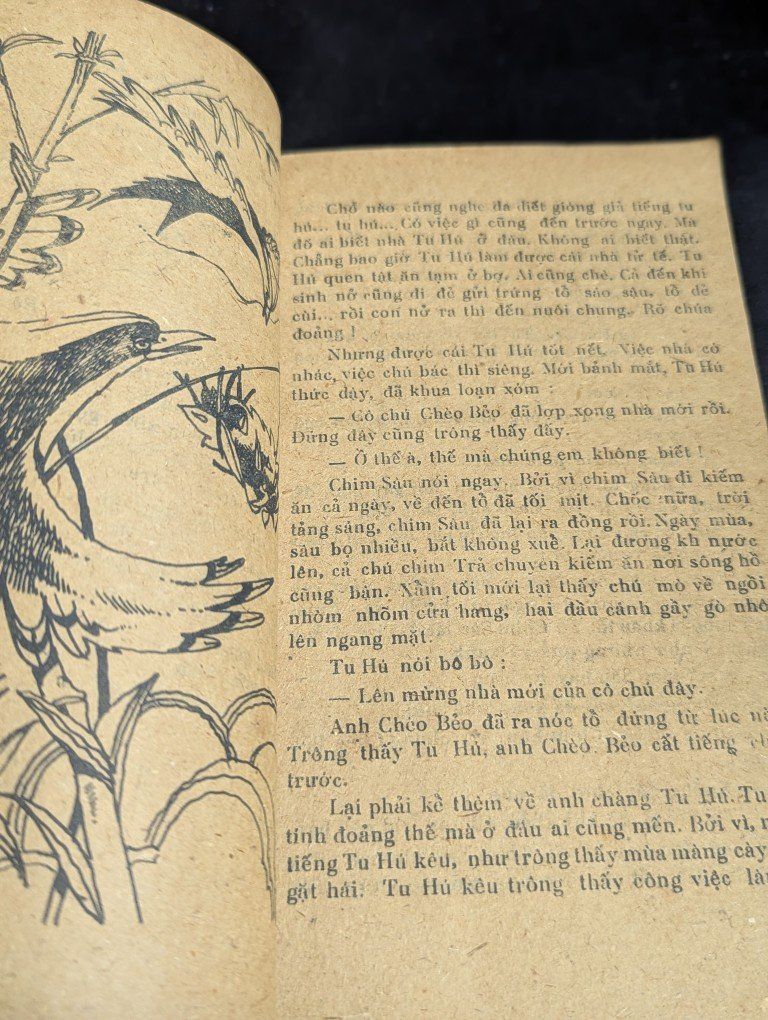 Chỗ nào cũng nghe da diết gióng giả tiếng tu
hú... tu hú... Có việc gì cũng đến trước ngay. Mà
đố ai biết nhà Tu Hú ở đâu. Không ai biết thật.
Chẳng bao giờ Tu Hú làm được cái nhà tử tế. Tu
Hú quen tật ăn tạm ở bợ. Ai cũng chê. Cả đến khi
sinh nở cũng đi đẻ gửi trứng tổ sáo sậu, tổ dẽ
cùi... rồi con nở ra thì đến nuôi chung. Rõ chúa
đoảng !
Nhưng được cái Tu Hú tốt nết. Việc nhà có
nhác, việc chú bác thì siêng. Mới bảnh mắt, Tu Hú
thức dậy, đã khua loạn xóm :
— Cô chú Chèo Bẻo đã lợp xong nhà mới rồi.
Đứng đây cũng trông thấy đấy.
— Ồ thế à, thế mà chúng em không biết !
Chim Sâu nói ngay. Bởi vì chim Sâu đi kiếm
ăn cả ngày, về đến tổ đã tối mịt. Chốc nữa, trời
tảng sáng, chim Sâu đã lại ra đồng rồi. Ngày mùa,
sâu bọ nhiều, bắt không xuể. Lại đương kh nước
lên, cả chú chim Trả chuyên kiếm ăn nơi sông hồ
cũng bận. Nằm tối mới lại thấy chú mò về ngồi
nhòm nhõm cửa hang, hai đầu cánh gầy gò nhô
lên ngang mặt.
Tu Hú nói bô bô :
— Lên mừng nhà mới của cô chú đây.
Anh Chèo Bẻo đã ra nóc tổ đứng từ lúc
Trông thấy Tu Hú, anh Chèo Bẻo cất tiếng
trước.
Lại phải kể thêm về anh chàng Tu Hú. Tu
tính đoảng thế mà ở đâu ai cũng mến. Bởi vì,
tiếng Tu Hú kêu, như trông thấy mùa màng cày
gặt hái. Tu Hú kêu trông thấy công việc